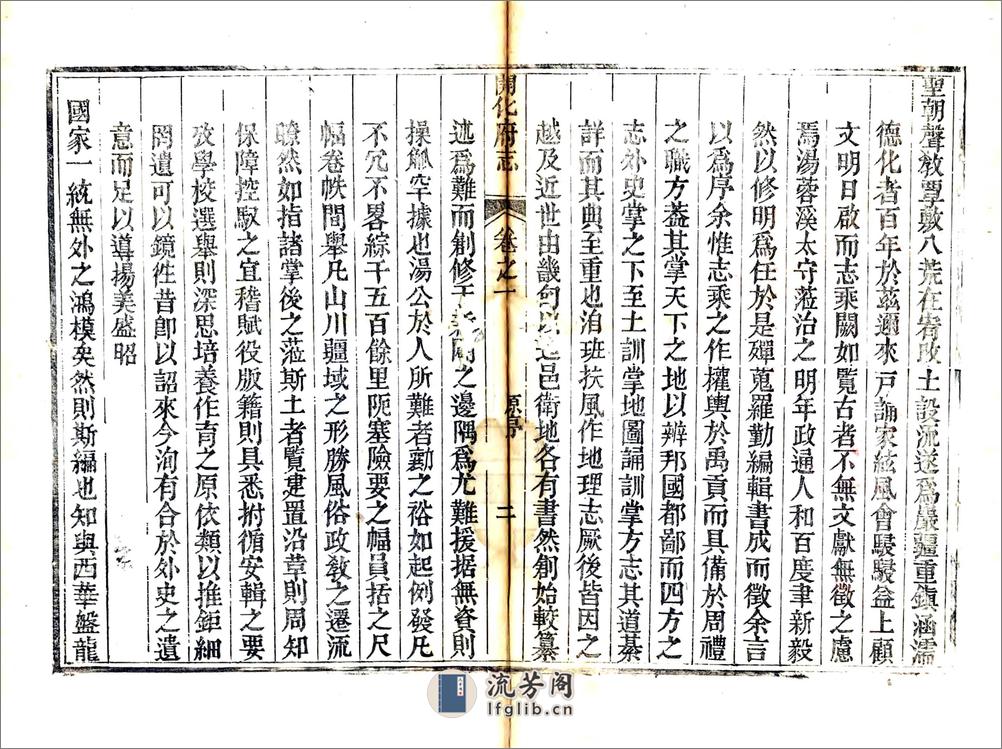 聖朝聲敎覃敷八荒在昔改土設流遂爲巖疆重鎮涵濡
德化者百年於茲邇來戸誦家絃風會駸駸益上顧
文明日啟而志乘闕如覽古者不無文獻無徵之慮
焉湯蓉溪太守蒞治之明年政通人和百度聿新毅
然以修明爲任於是殫蒐羅勤編輯書成而徵余言
以爲序余惟志乘之作權輿於禹貢而具備於周禮
之職方蓋其掌天下之地以辨邦國都鄙而四方之
志外史掌之下至土訓掌地圖誦訓掌方志其道綦
詳而其典至重也洎班扶風作地理志厥後皆因之
越及近世由畿甸以邑衛地各有書然創始較纂
開化府志
卷之一
原序
二
述爲難而創修之邊隅爲尤難援据無資則
操觚空據也湯公於人所難者勷之裕如起例發凡
不冗不畧綜千五百餘里阨塞險要之幅員括之尺
幅卷帙間舉凡山川疆域之形勝風俗政敎之遷流
瞭然如指諸掌後之蒞斯土者覽建置沿革則周知
保障控馭之宜稽賦役版籍則具悉拊循安輯之要
攷學校選舉則深思培養作育之原依類以推鉅細
罔遺可以鏡徃昔卽以詔來今洵有合於外史之遺
意而足以導揚美盛昭
國家一統無外之鴻模矣然則斯編也知與西華盤龍
流芳阁
lfglib.cn